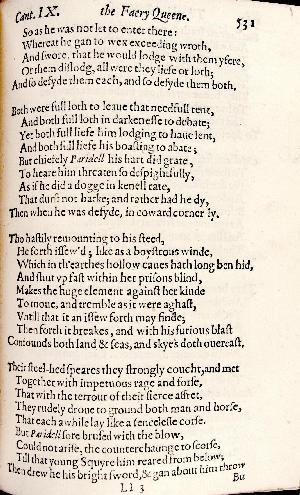 Cant. IX. the Faery Queene. 531
So as he was not let to enter there:
Whereat he gan to wex exceeding wroth,
And swore, that he would lodge with them yfere,
Or them dislodg, all were they liefe or loth;
And so defyde them each, and so defyde them both,
Both were full loth to leaue that needfull tent,
And both full loth in darkenesse to debate;
Yet both full liefe him lodging to haue lent,
And both full liefe his boasting to abate;
But chiefely Paridell his hart did grate,
To heare him threaten so despightfully,
As if he did a dogge in kenell rate,
That durst not barke; and rather had he dy,
Then when he was defyde, in coward corner ly.
Tho hastily remounting to his steed,
He forth issew'd; like as a boystrous winde,
Which in th'earthes hollow caues hath long ben hid,
And shut vp fast within her prisons blind,
Makes the huge element against her kinde
To moue, and tremble as it were aghast,
Vntill that it an issew forth may finde;
Then forth it breakes, and with his furious blast
Confounds both land & seas, and skyes doth ouercast,
Their steel-hed speares they strongly coucht, and met
Together with impetuous rage and forse,
That with the terrour of their fierce affret,
They rudely droue to ground both man and horse,
That each awhile lay like a sencelesse corse.
But Paridell sore brused with the blow,
Could not arise, the counterchaunge to scorse,
Till that young Squyre him reared from below;
Then drew he his bright sword, & gan about him throw
Ll 3 But